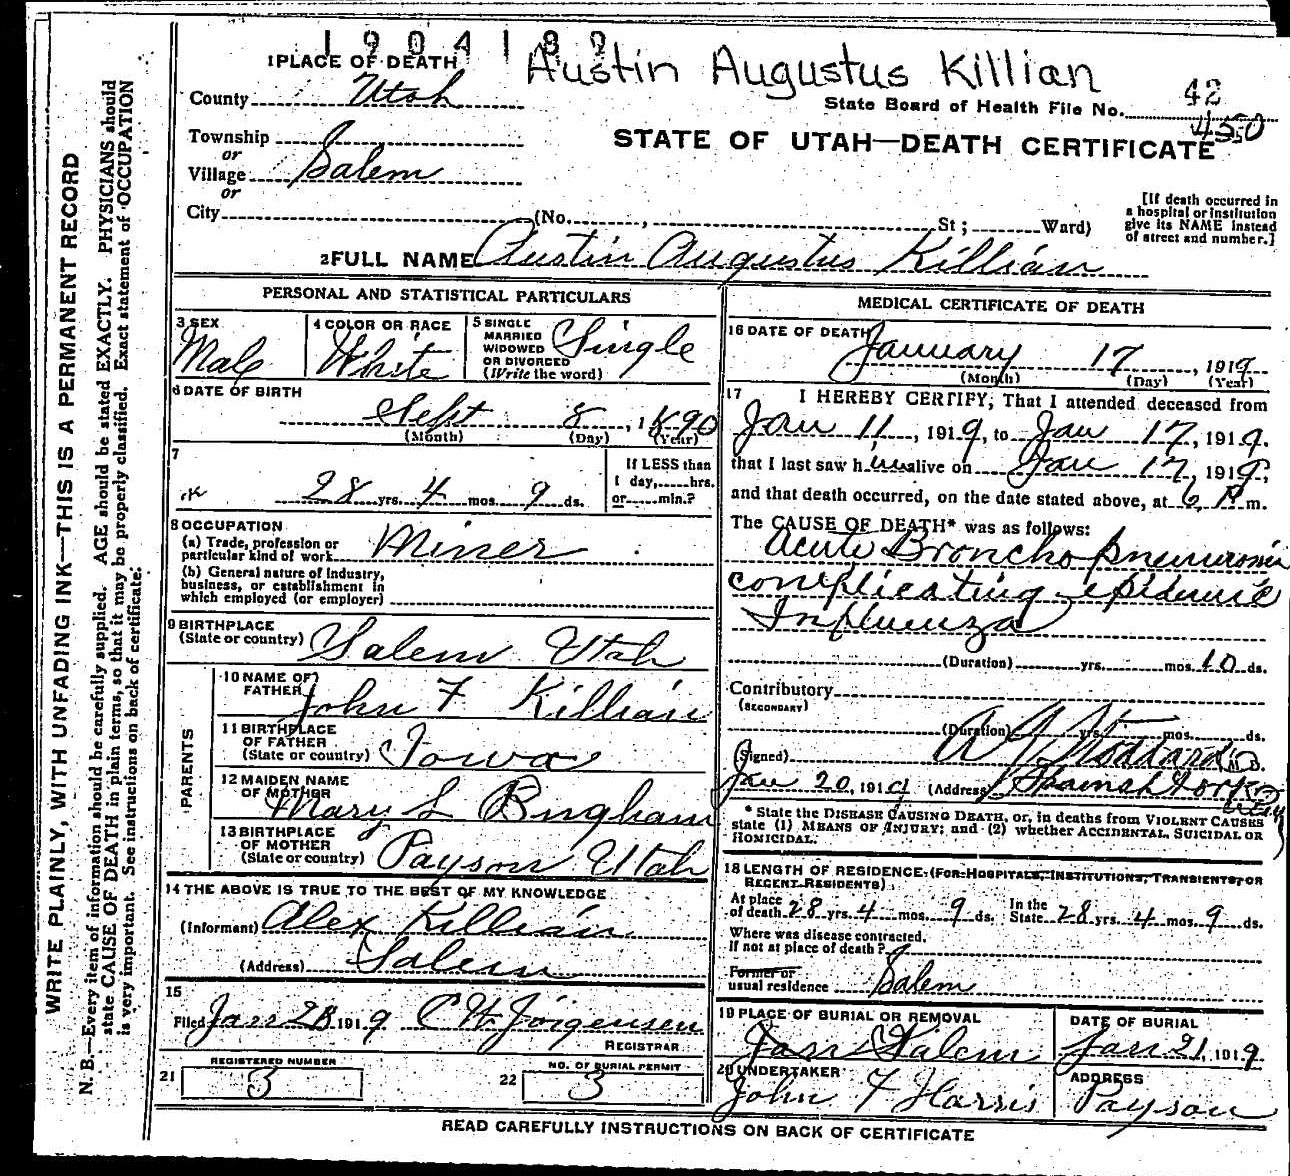 1904189
Austin Augustus Killian
1 PLACE OF DEATH
County Utah
State Board of Health File No. 42
450
Township
or
Village Salem
or
City (No. , St ; Ward)
STATE OF UTAH—DEATH CERTIFICATE
[If death occurred in
a hospital or institution
give its NAME instead
of street and number.]
2 FULL NAME Austin Augustus Killian
PERSONAL AND STATISTICAL PARTICULARS
3 SEX
Male
4 COLOR OR RACE
White
5 SINGLE
MARRIED
WIDOWED
OR DIVORCED
(Write the word)
Single
6 DATE OF BIRTH
Sept 8, 1890
(Month) (Day) (Year)
7
28 yrs. 4 mos. 9 ds.
If LESS than
1 day, hrs.
or min.?
8 OCCUPATION
(a) Trade, profession or
particular kind of work Miner
(b) General nature of industry,
business, or establishment in
which employed (or employer)
9 BIRTHPLACE
(State or country) Salem Utah
PARENTS
10 NAME OF
FATHER John F Killian
11 BIRTHPLACE
OF FATHER
(State or country) Iowa
12 MAIDEN NAME
OF MOTHER Mary L Bingham
13 BIRTHPLACE
OF MOTHER
(State or country) Payson Utah
14 THE ABOVE IS TRUE TO THE BEST OF MY KNOWLEDGE
(Informant) Alex Killian
(Address) Salem
15
Filed Jan 28 1919 C W Jorgensen
REGISTRAR
21 REGISTERED NUMBER
3
22 NO. OF BURIAL PERMIT
3
MEDICAL CERTIFICATE OF DEATH
16 DATE OF DEATH
January 17, 1919
(Month) (Day) (Year)
17 I HEREBY CERTIFY, That I attended deceased from
Jan 11, 1919, to Jan 17, 1919.
that I last saw him alive on Jan 17, 1919,
and that death occurred, on the date stated above, at 6 P m.
The CAUSE OF DEATH* was as follows:
Acute Broncho pneumonia
complicating epidemic
Influenza
(Duration) yrs. mos. 10 ds.
Contributory
(SECONDARY)
(Duration) yrs. mos. ds.
(Signed) Stoddard M.D.
Jan 20, 1919 (Address) Spanish Fork
* State the DISEASE CAUSING DEATH, or, in deaths from VIOLENT CAUSES
state (1) MEANS OF INJURY; and (2) whether ACCIDENTAL, SUICIDAL OR
HOMICIDAL.
18 LENGTH OF RESIDENCE (FOR HOSPITALS, INSTITUTIONS, TRANSIENTS, OR
RECENT RESIDENTS)
At place
of death 28 yrs. 4 mos. 9 ds.
In the
State 28 yrs. 4 mos. 9 ds.
Where was disease contracted,
If not at place of death?
Former or
usual residence Salem
19 PLACE OF BURIAL OR REMOVAL
Salem
DATE OF BURIAL
Jan 21, 1919
20 UNDERTAKER
John F Harris
ADDRESS
Payson
READ CAREFULLY INSTRUCTIONS ON BACK OF CERTIFICATE
WRITE PLAINLY, WITH UNFADING INK—THIS IS A PERMANENT RECORD
N. B.—Every item of information should be carefully supplied. AGE should be stated EXACTLY. PHYSICIANS should
state CAUSE OF DEATH in plain terms, so that it may be properly classified. Exact statement of OCCUPATION
is very important. See instructions on back of certificate.